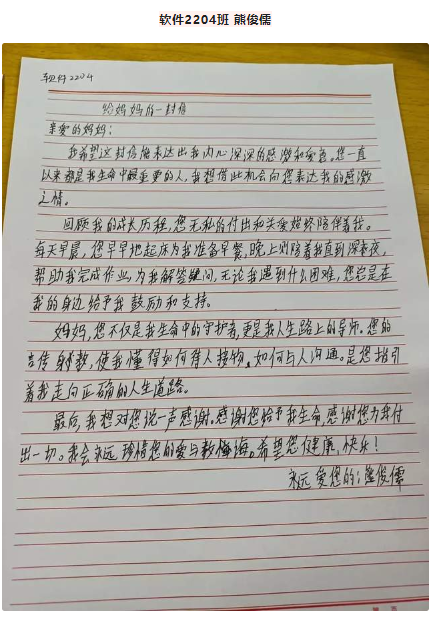 软件2204班 熊俊儒
软件2204
给妈妈的一封信
亲爱的妈妈：
我希望这封信能表达出我内心深深的感激和爱意。您一直
以来都是我生命中最重要的人，我想借此机会向您表达我的感激
之情。
回顾我的成长历程，您无私的付出和关爱始终陪伴着我。
每天早晨，您早早地起床为我准备早餐，晚上则陪着我直到深夜，
帮助我完成作业，为我解答疑问，无论我遇到什么困难，您总是在
我的身边给予我鼓励和支持。
妈妈，您不仅是我生命中的守护者，更是我人生路上的导师。您的
言传身教，使我懂得如何待人接物，如何与人沟通。是您指引
着我走向正确的人生道路。
最后，我想对您说一声感谢。感谢您给予我生命，感谢您为我付
出一切。我会永远珍惜您的爱与教诲。希望您健康，快乐！
永远爱您的：熊俊儒